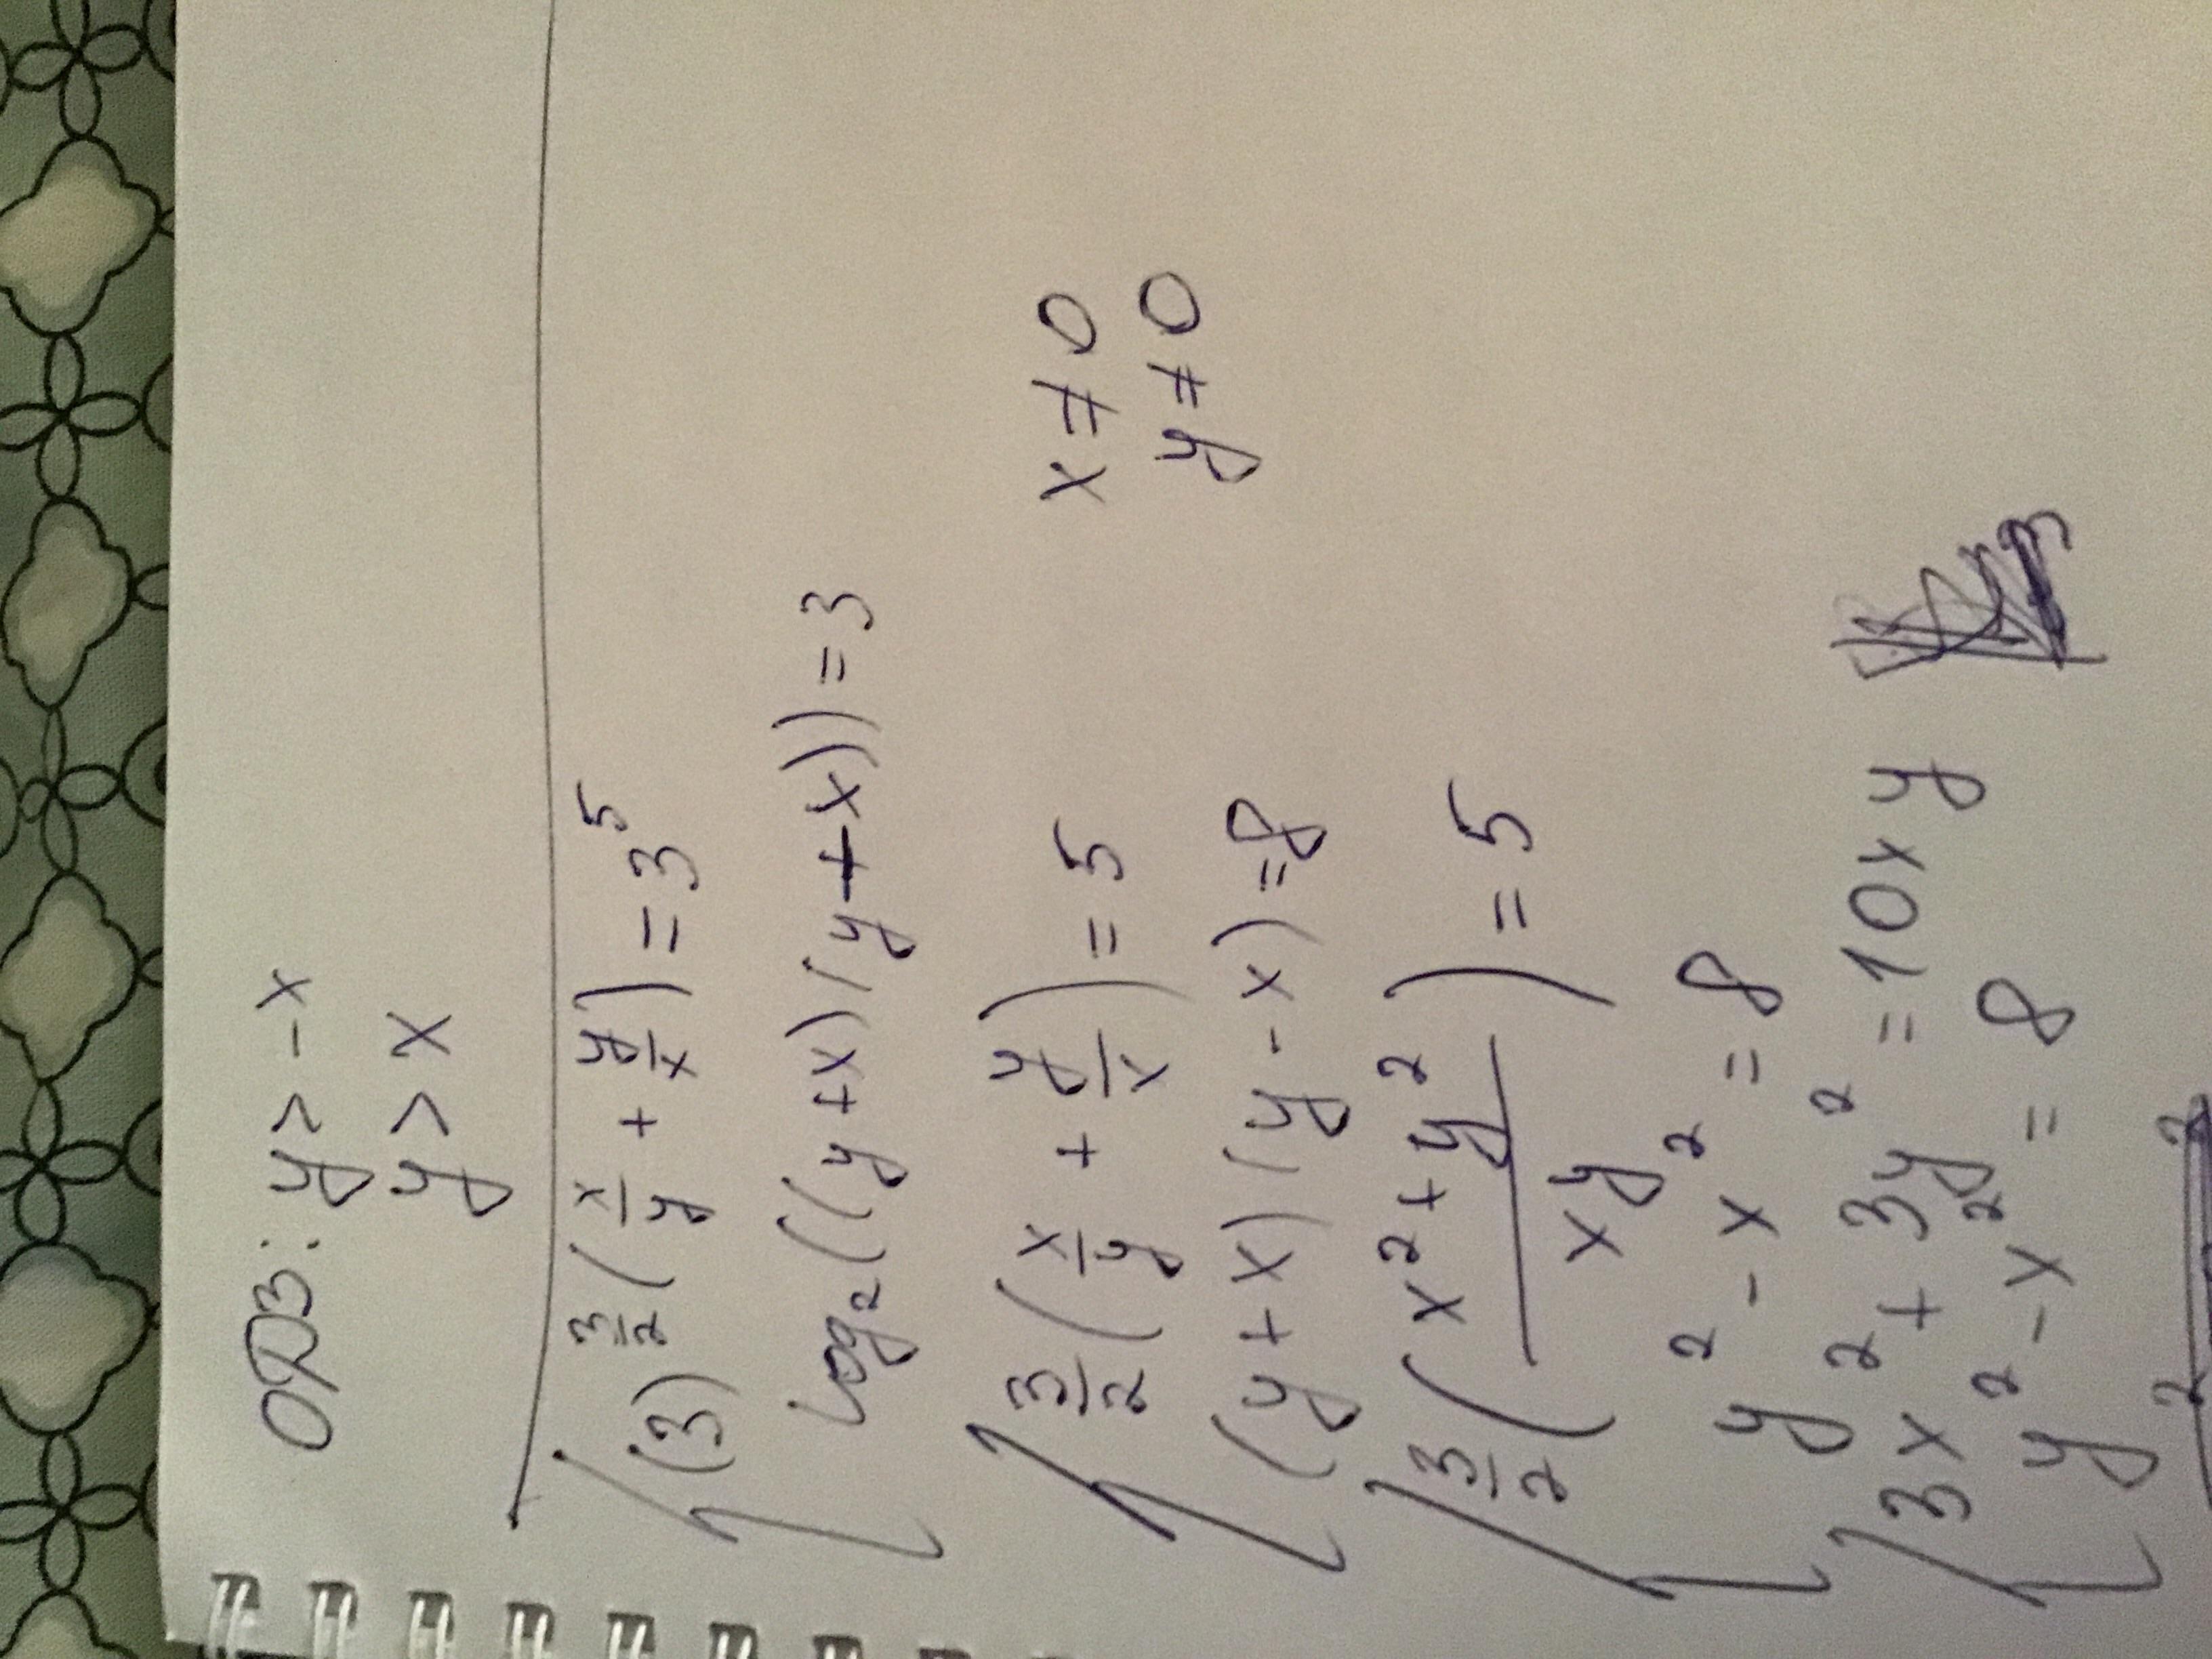 ОДЗ: y > -x
y > x
(3)^{3/2(x/y + y/x)} = 3^5
log₂((y+x)(y+x)) = 3
3/2(x/y + y/x) = 5
x ≠ 0
(y+x)(y-x)=8
y ≠ 0
3/2((x²+y²)/xy) = 5
y² - x² = 8
3x² + 3y² = 10xy
y² - x² = 8